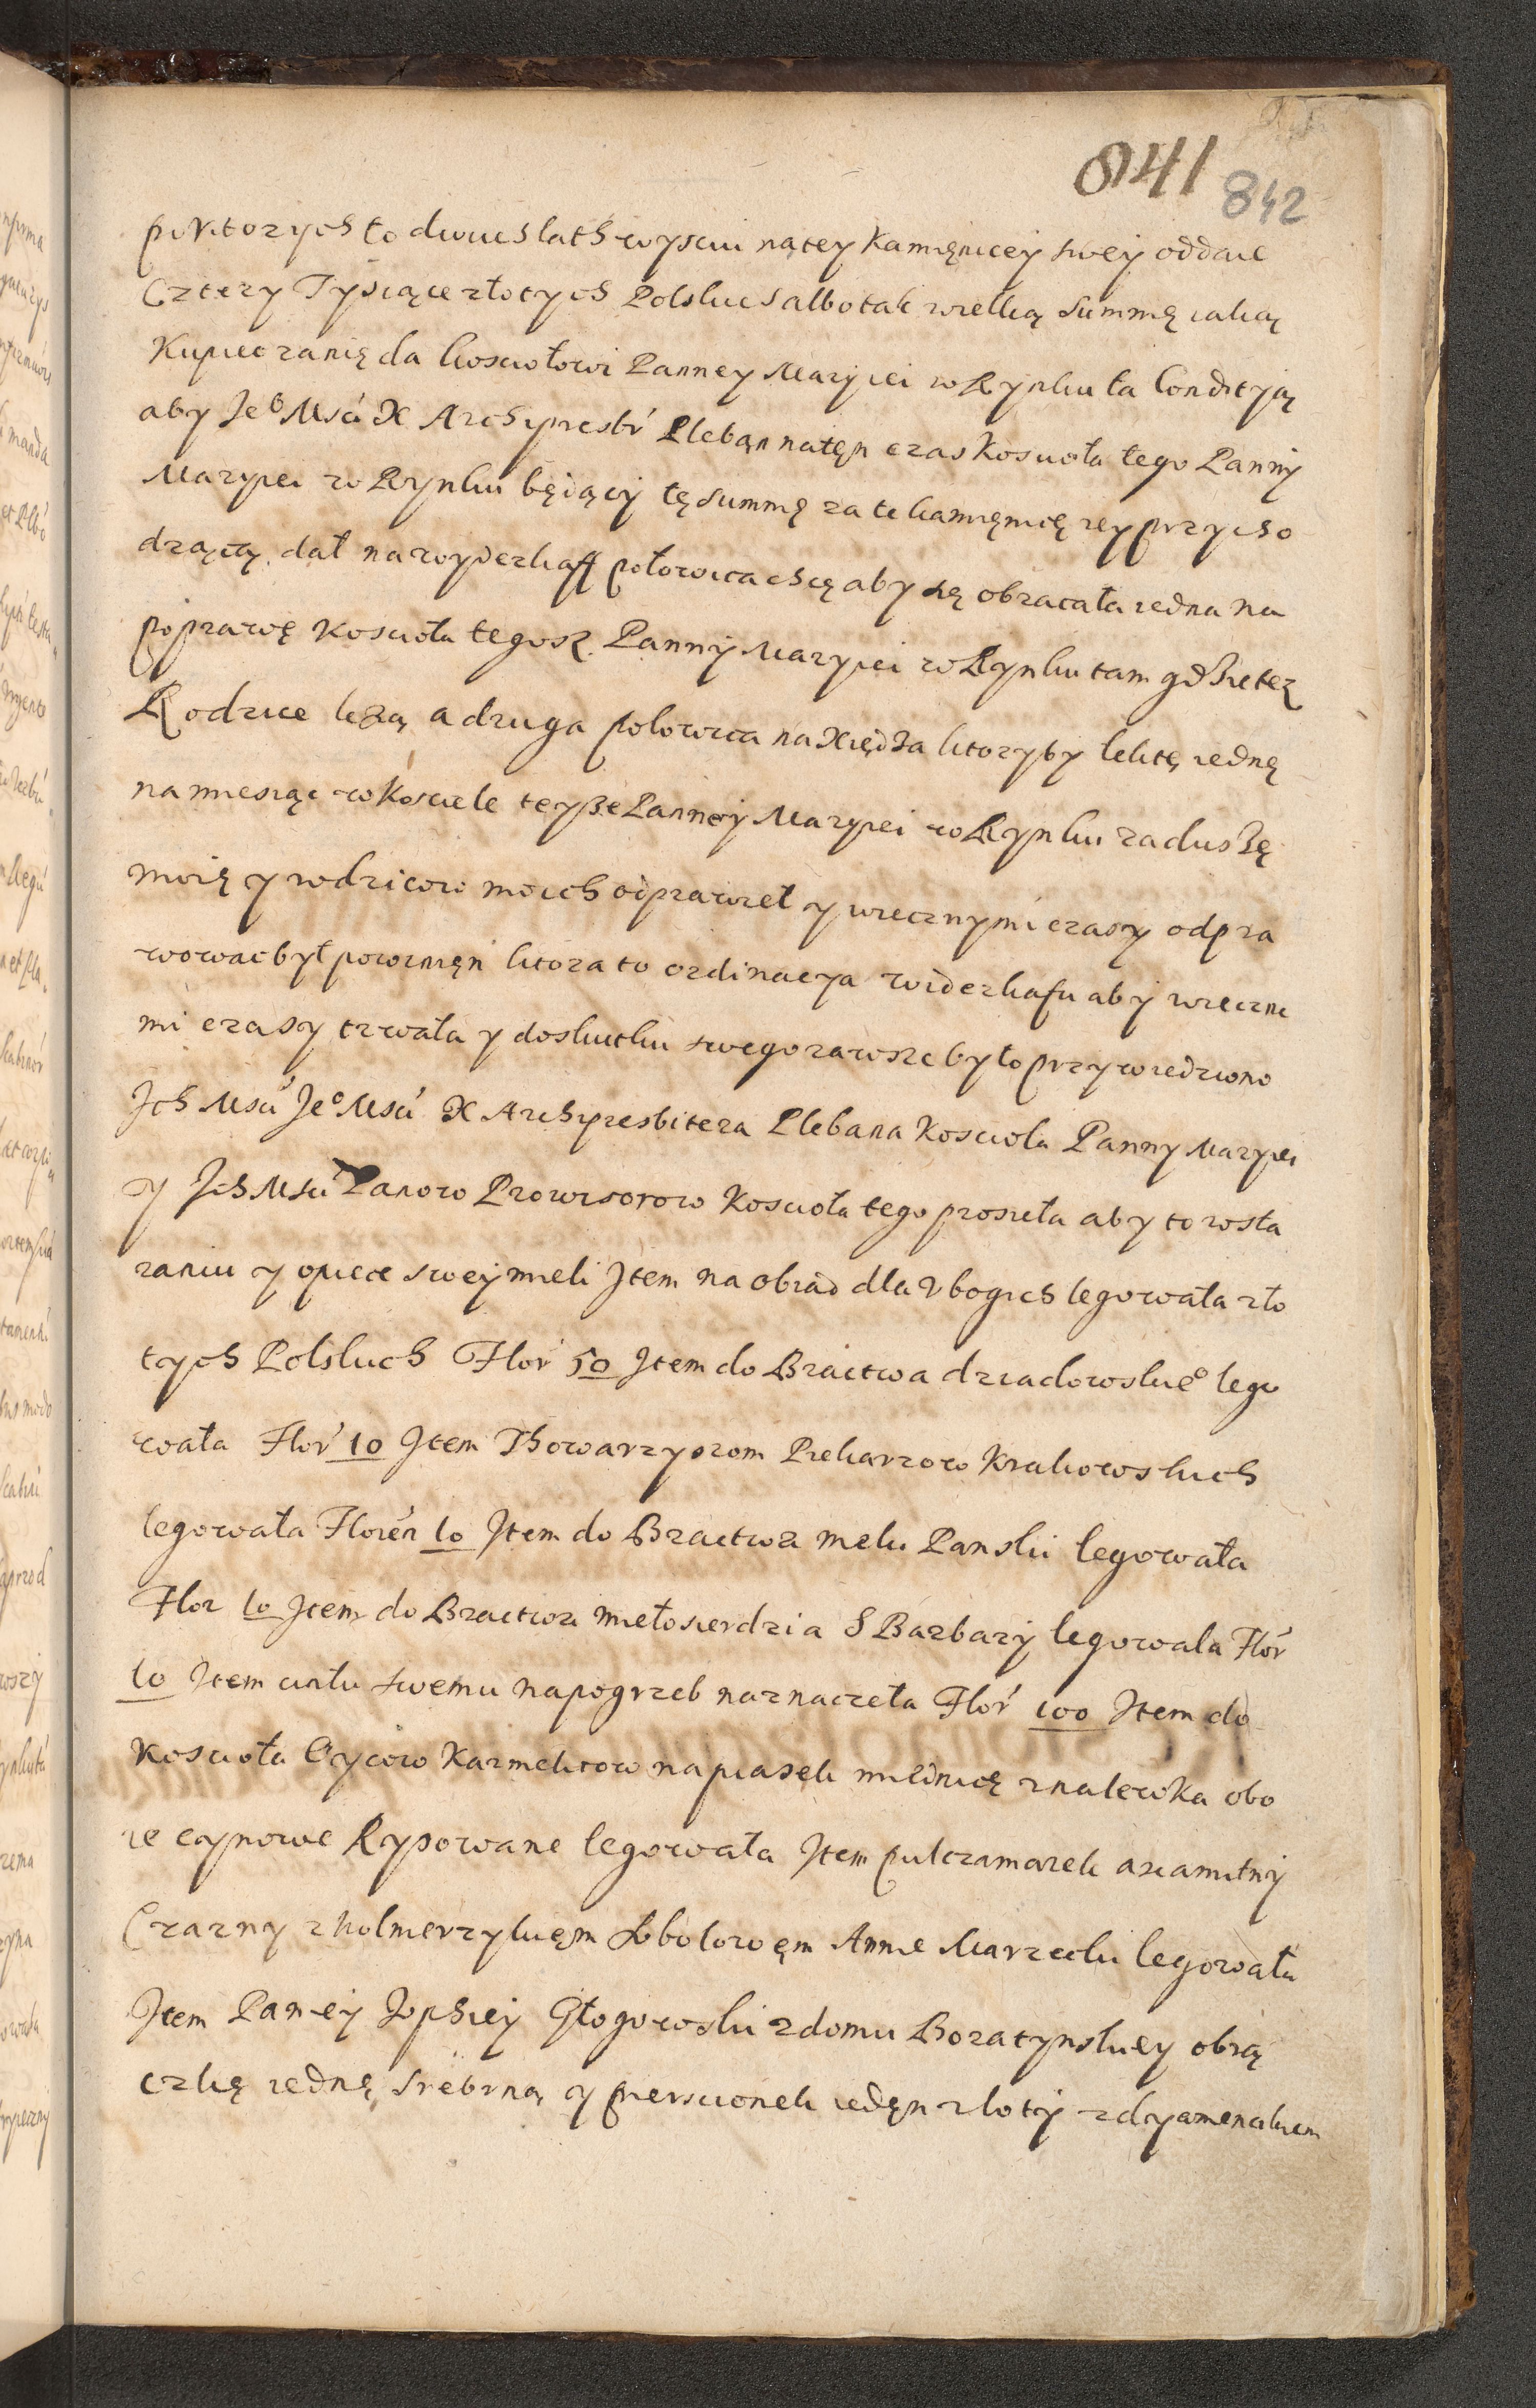 841
842
po ktorych to dwuch lath wysciu natey Kamięnicej swej oddaie
Cztery Tysiące złotych Polskich albo tak wielką summę iaką
Kupiec zanię da kosciołowi Panney Maryiei w Rynku ta Conditją
aby Jeo Msć X Archipresbr Plebąn natęn czas Koscioła tego Panny
Maryiei w Rynku będący tę summę za te kamięnicę iey przycho
dzącą dał nawyderkaff połowica chcę aby się obracała iedna na
poprawę Koscioła tegosz Panny Maryiei w Rynku tam gdzie też
Rodzice leżą a druga połowica na Xiędza ktoryby lekte iednę
na miesiąc w Kosciele teyże Panney Maryiei w Rynku za duszę
moię y rodzicow moich odprawieł y wiecznymi czasy odpra
wowac był powinięn ktora to ordinacya widerkafu abj wieczne
mi czasy trwała y doskutku swego zawsze było przywiedziono
Ich Msći Jeo Msći X Archypresbitera Plebana Koscioła Panny Maryiei
y Ich Msći Panow Prowisorow Koscioła tego prosieła aby to wsta
raniu y opiece swej mieli Item na obiad dla Vbogich legowała zło
tych Polskich Flor 50 Item do Bractwa dziadowskieo lego
wała Flor 10 Item Thowarzyszom Piekarzow Krakowskich
legowała Florén 10 Item do Bractwa meki Panski legowała
Flor 10 Item do Bractwa miełosierdzia S Barbarj legowala Flor
10 Item ciału swemu napogrzeb naznaczeła Flor 100 Item do
Koscioła Oycow Karmelitow napiasek miednicę znalewka obo
ie cynowe Rysowane legowała Item pulczamarek axamitnj
Czarny z kolnierzykięm Sobolowęm Annie Marzecki legowała
Item Paniej Zophiej Głogowski zdomu Boratynskiey obrą
czkę iednę srebrną y piersionek iedęn złotj zdyamencikiem